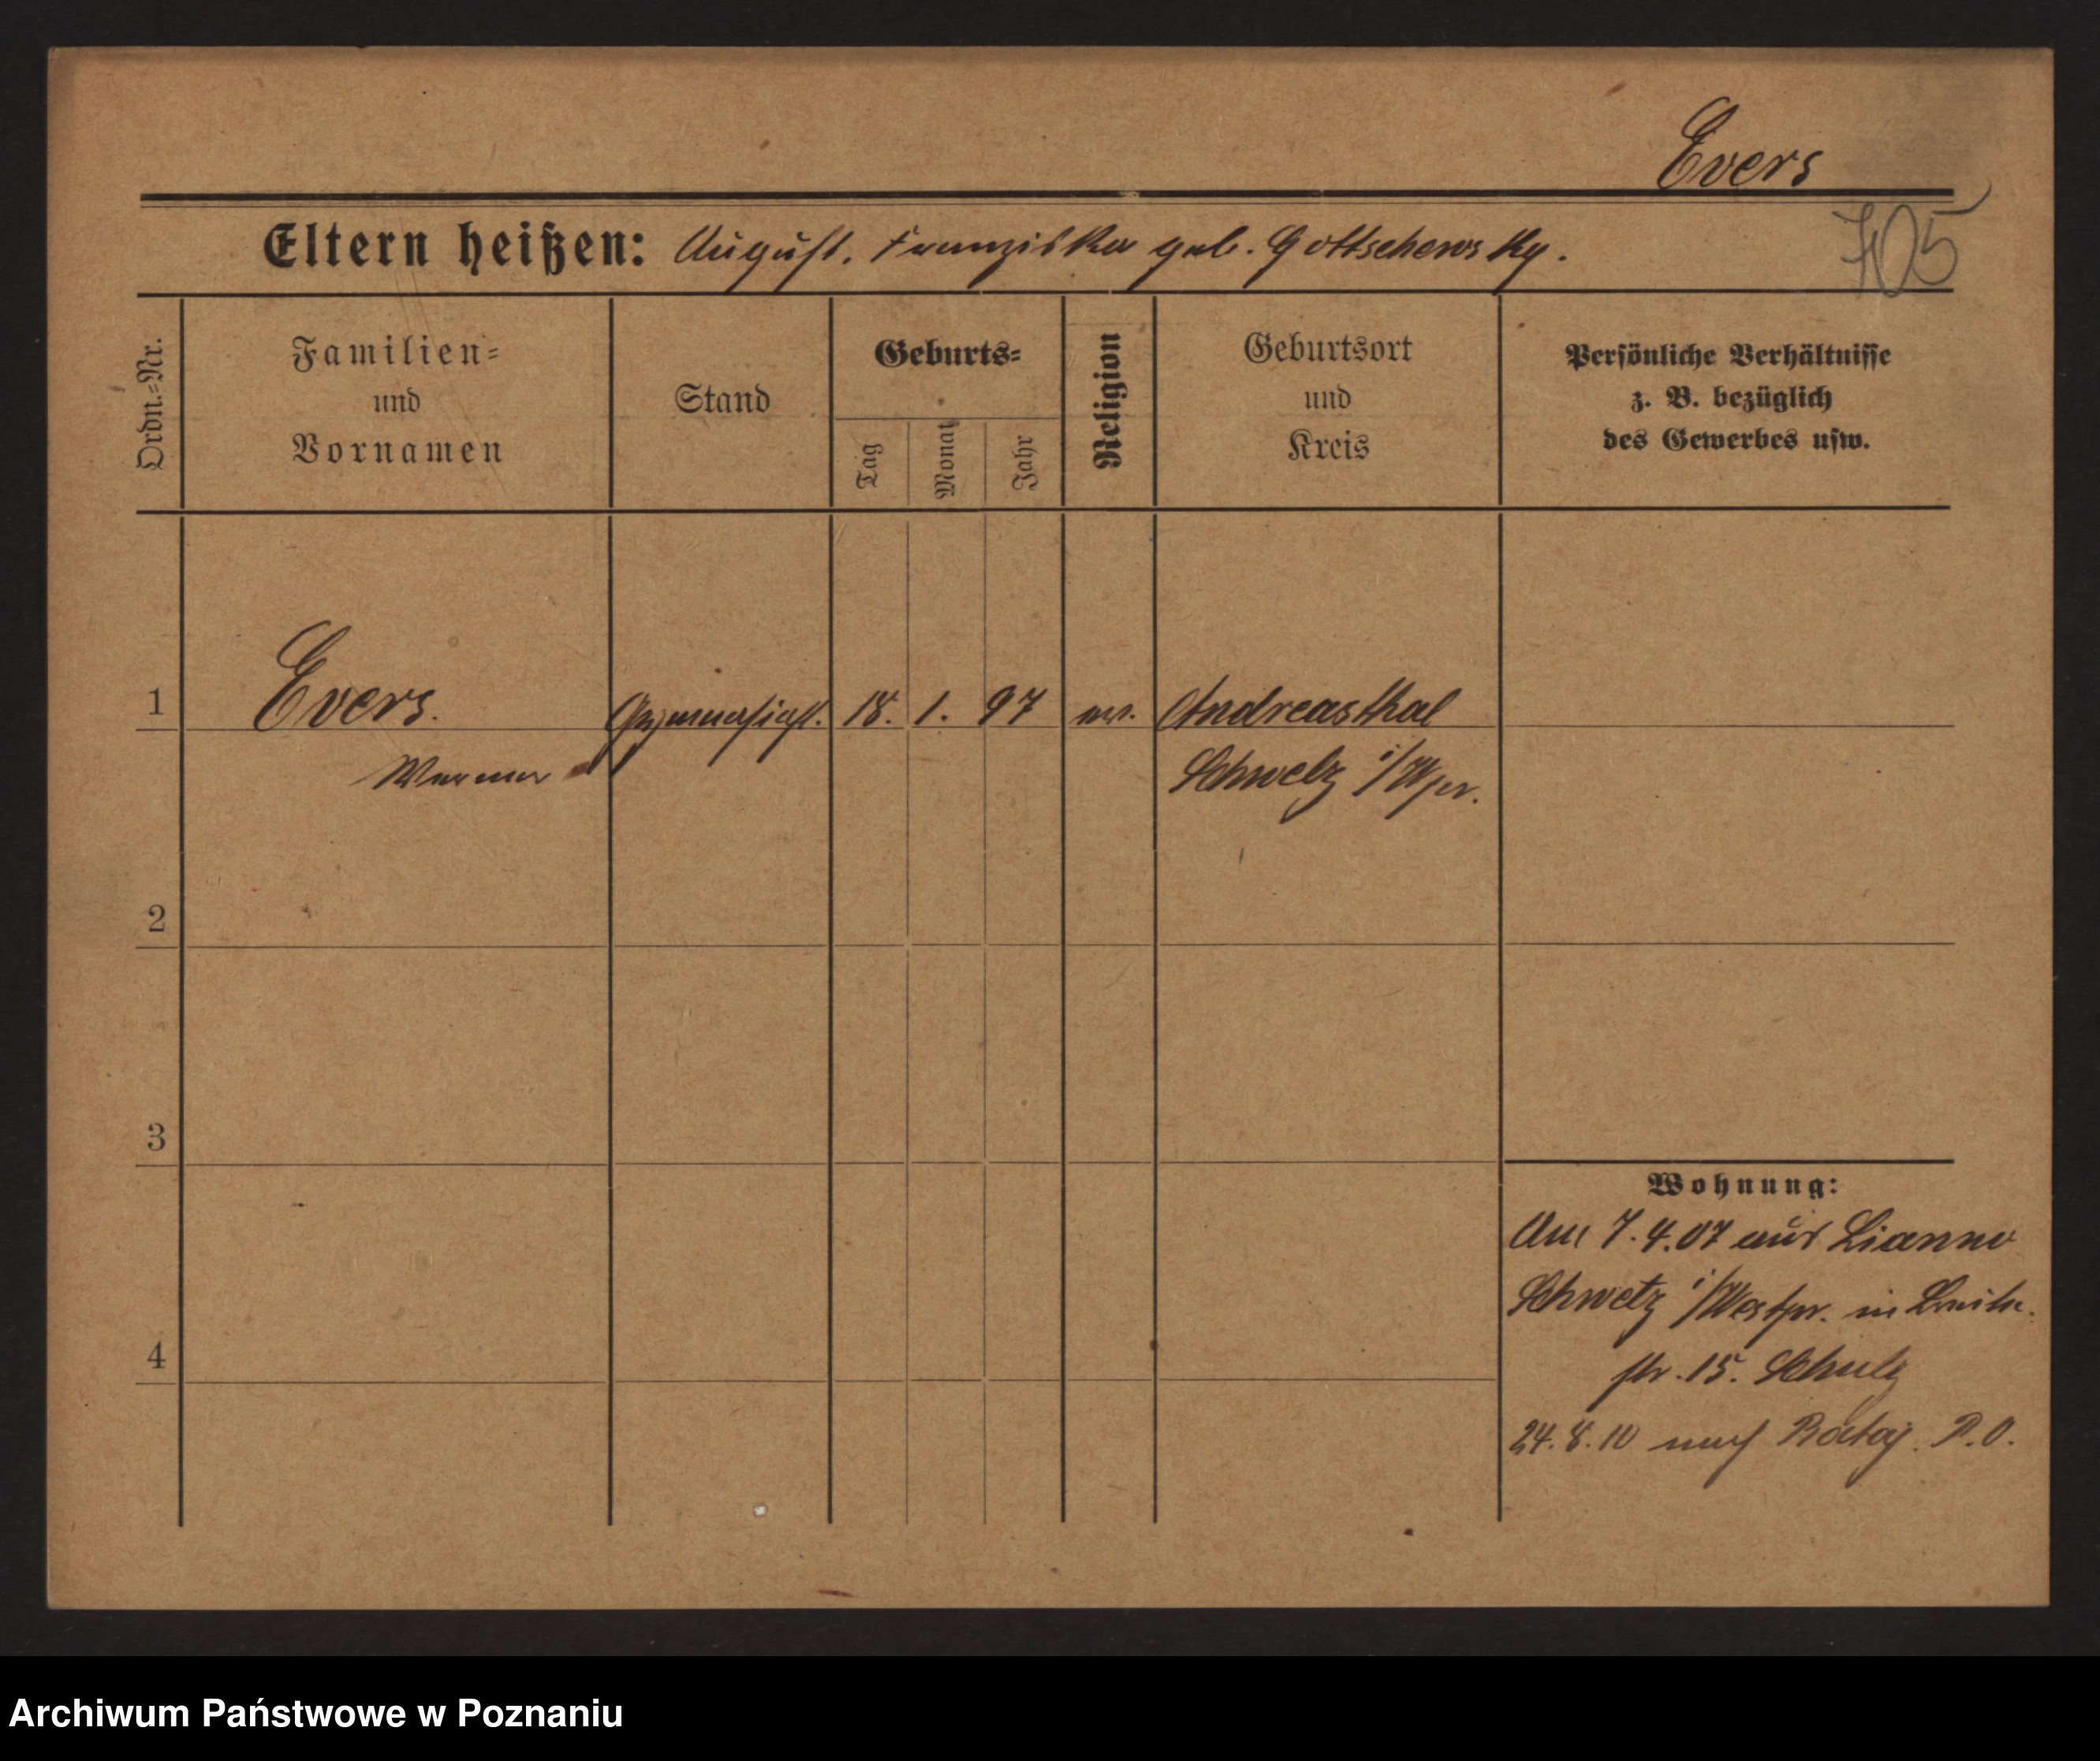 Evers
705
Eltern heißen: August. Franziska geb. Gottschewsky.
Ordn.-Nr.
Familien-
und
Vornamen
Stand
Geburts-
Tag
Monat
Jahr
Religion
Geburtsort
und
Kreis
Persönliche Verhältnisse
z. B. bezüglich
des Gewerbes usw.
1 Evers. Gymnasiast. 18. 1. 97 ev. Andreasthal
Werner Schwetz i/Wpr.
2
3
4
Wohnung:
Am 7.4.07 aus Lianno
Schwetz i/Westpr. in
str. 15. Schulz
24.8.10 nach Rataj. P.O.
Archiwum Państwowe w Poznaniu